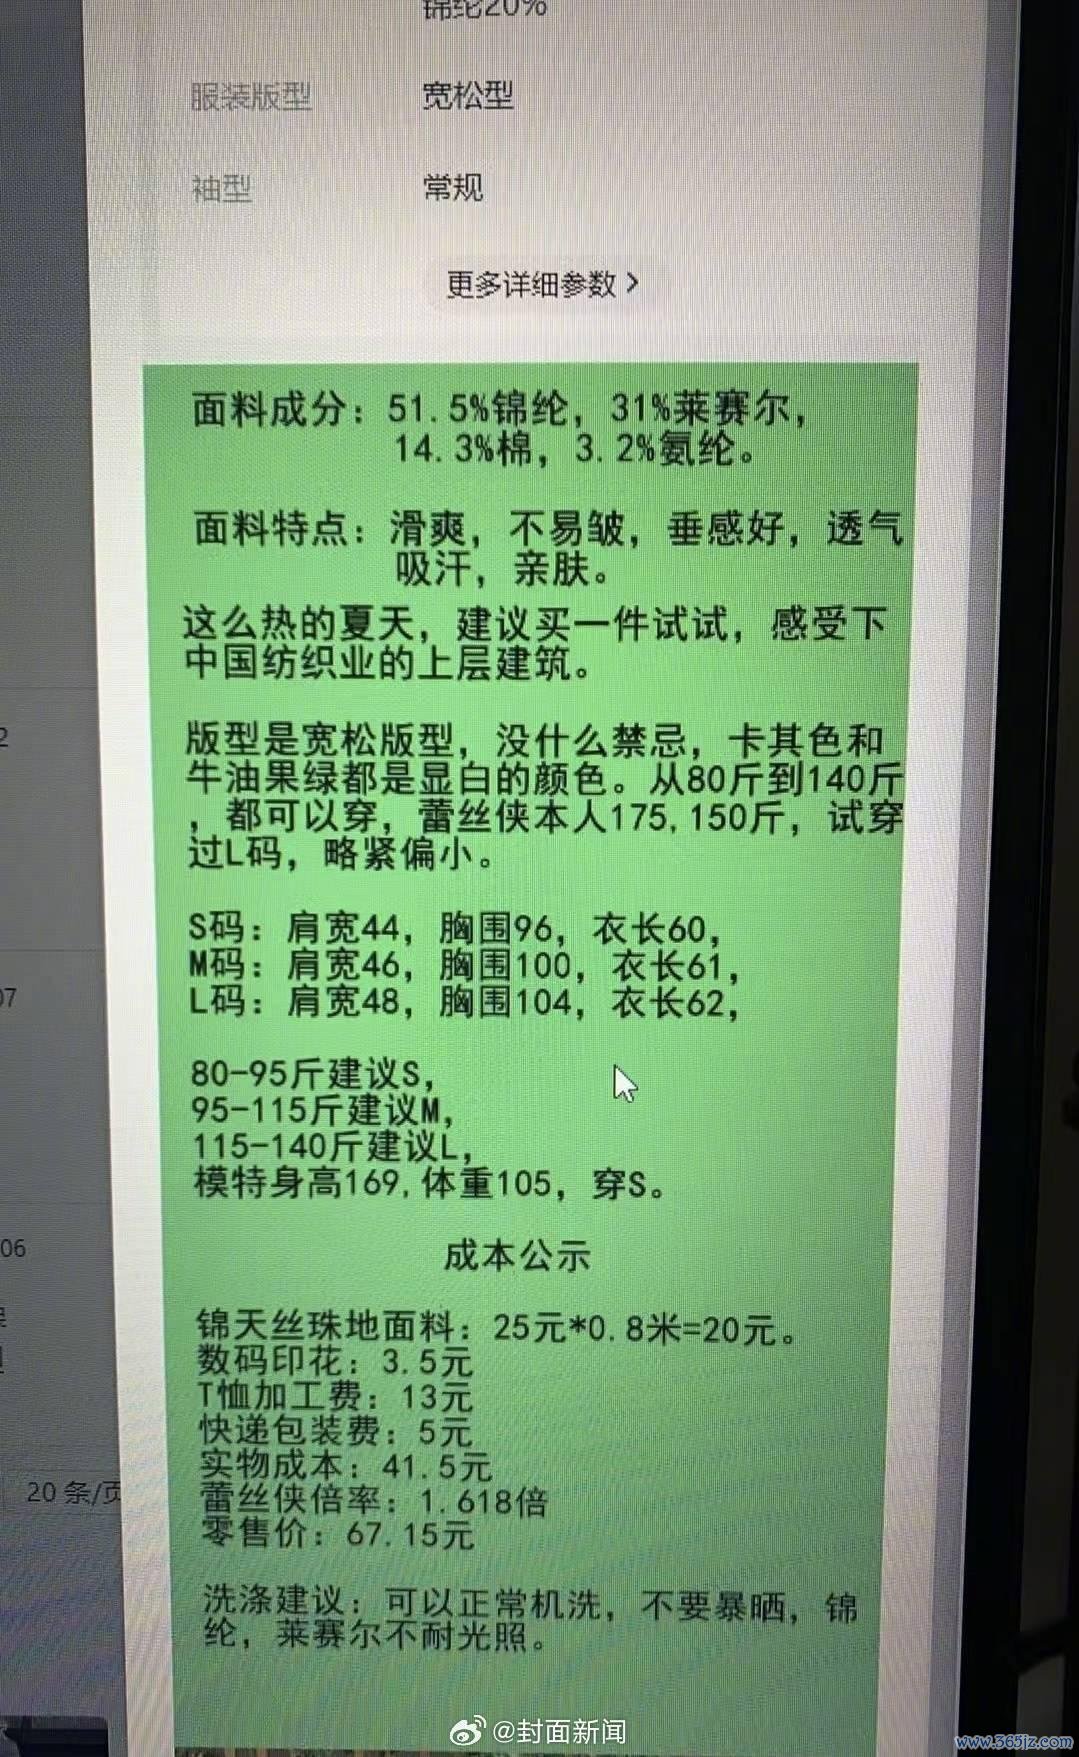 锦纶20%
服装版型 宽松型
袖型 常规
更多详细参数 >
面料成分：51.5%锦纶，31%莱赛尔，
14.3%棉，3.2%氨纶。
面料特点：滑爽，不易皱，垂感好，透气
吸汗，亲肤。
这么热的夏天，建议买一件试试，感受下
中国纺织业的上层建筑。
版型是宽松版型，没什么禁忌，卡其色和
牛油果绿都是显白的颜色。从80斤到140斤
，都可以穿，蕾丝侠本人175,150斤，试穿
过L码，略紧偏小。
S码：肩宽44，胸围96，衣长60，
M码：肩宽46，胸围100，衣长61，
L码：肩宽48，胸围104，衣长62，
80-95斤建议S，
95-115斤建议M，
115-140斤建议L，
模特身高169,体重105，穿S。
成本公示
锦天丝珠地面料：25元*0.8米=20元。
数码印花：3.5元
T恤加工费：13元
快递包装费：5元
实物成本：41.5元
蕾丝侠倍率：1.618倍
零售价：67.15元
洗涤建议：可以正常机洗，不要暴晒，锦
纶，莱赛尔不耐光照。
2
07
06
20 条/页
@封面新闻
www.365jz.com